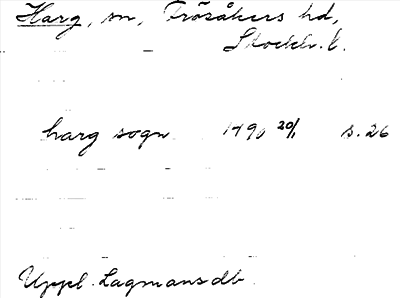 Harg, sn, Frösåkers hd,
Stockh. l.
harg sogn 1490 20/1 s. 26
Uppl. Lagmansdb.